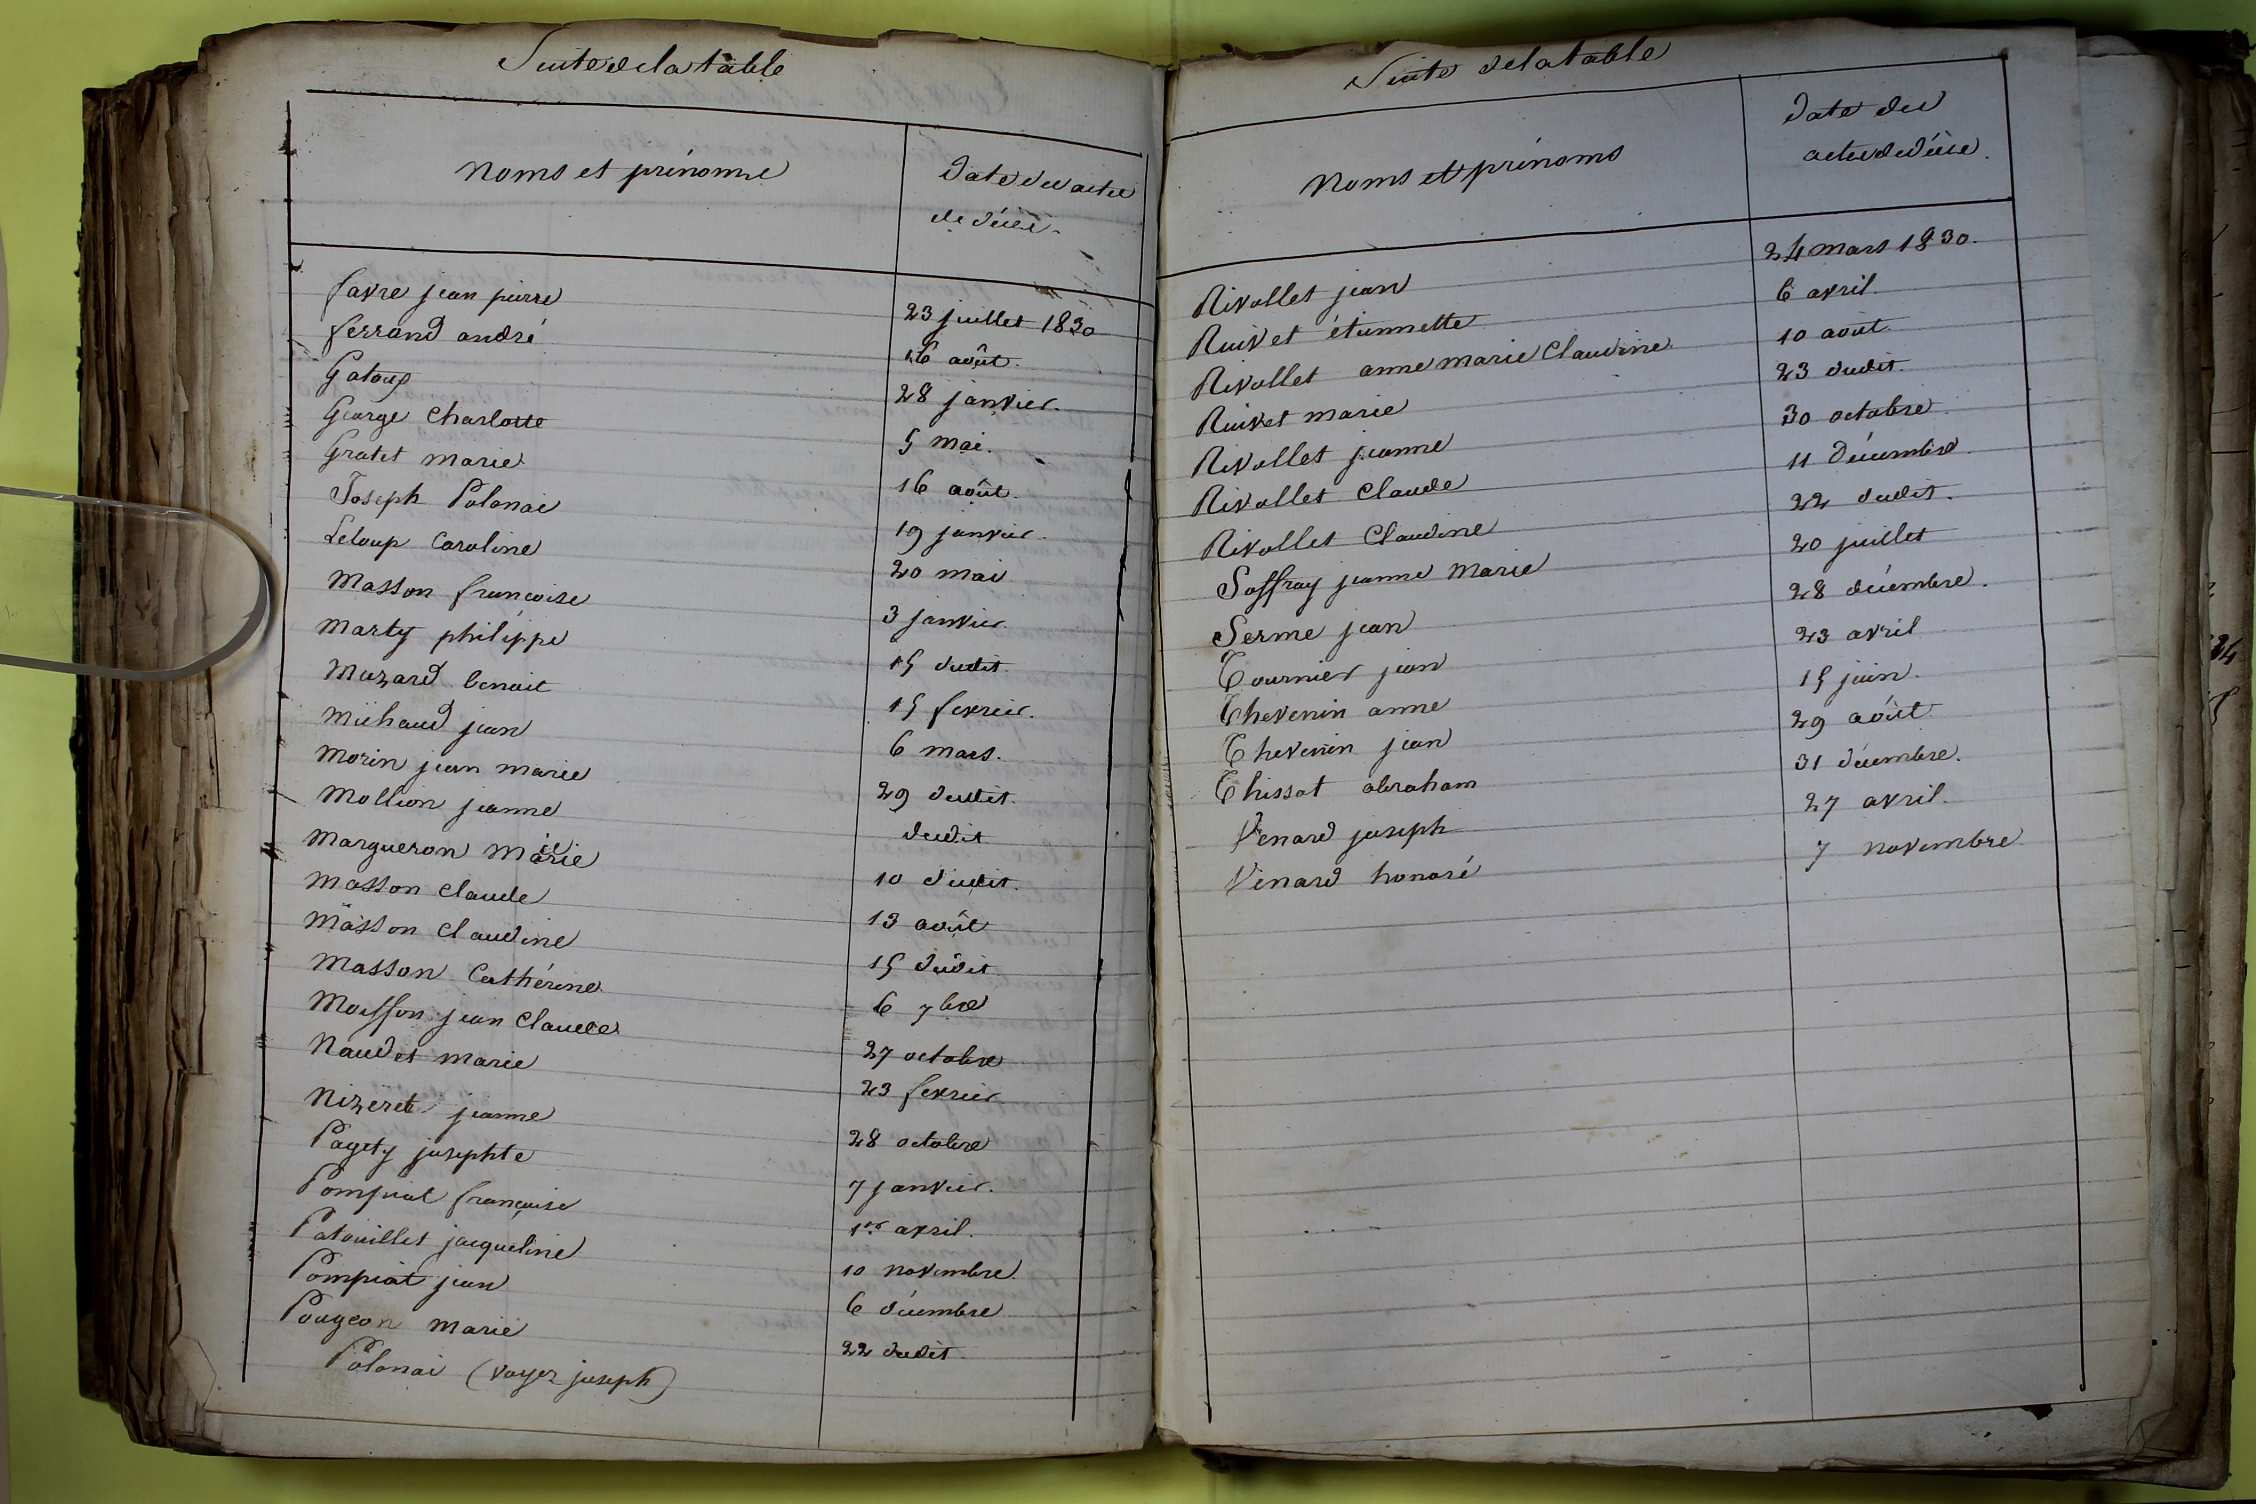 Suite de la table
Noms et prénoms
Date des actes
de décès.
favre jean pierre 23 juillet 1830
ferrand andré 16 août.
Gatoup 28 janvier.
George Charlotte 5 mai.
Gratet marie 16 août.
Joseph Polonai 19 janvier.
Leloup Caroline 20 mai
Masson francoise 3 janvier.
Marty philippe 15 dudit
Muzard benoit 15 fevrier.
Michaud jean 6 mars.
Morin jean marie 29 dudit.
Mollion jeanne dudit
Margueron marie 10 dudit.
Masson Claude 13 août
Masson Claudine 15 dudit
Masson Cathérine 6 7bre
Moisson jean Claude 27 octobre
Naudet marie 23 fevrier
Nizeret jeanne 28 octobre
Pagety josephte 7 janvier.
Pompiat françoise 1er avril.
Patouillet jacqueline 10 novembre.
Pompiat jean 6 décembre
Pougeon marie 22 dudit.
Polonai (voyez joseph)
Suite de la table
Noms et prénoms
Date des
actes de décès.
Rivollet jean 24 mars 1830.
Ruivet étiennette 6 avril.
Rivollet anne marie Claudine 10 août.
Ruivet marie 23 dudit.
Rivollet jeanne 30 octobre.
Rivollet Claude 11 décembre.
Rivollet Claudine 22 dudit.
Soffray jeanne Marie 20 juillet
Serme jean 28 décembre.
Tournier jean 23 avril
Thevenin anne 15 juin.
Thevenin jean 29 août
Thissot abraham 31 décembre.
Venard joseph 27 avril.
Venard honoré 7 novembre